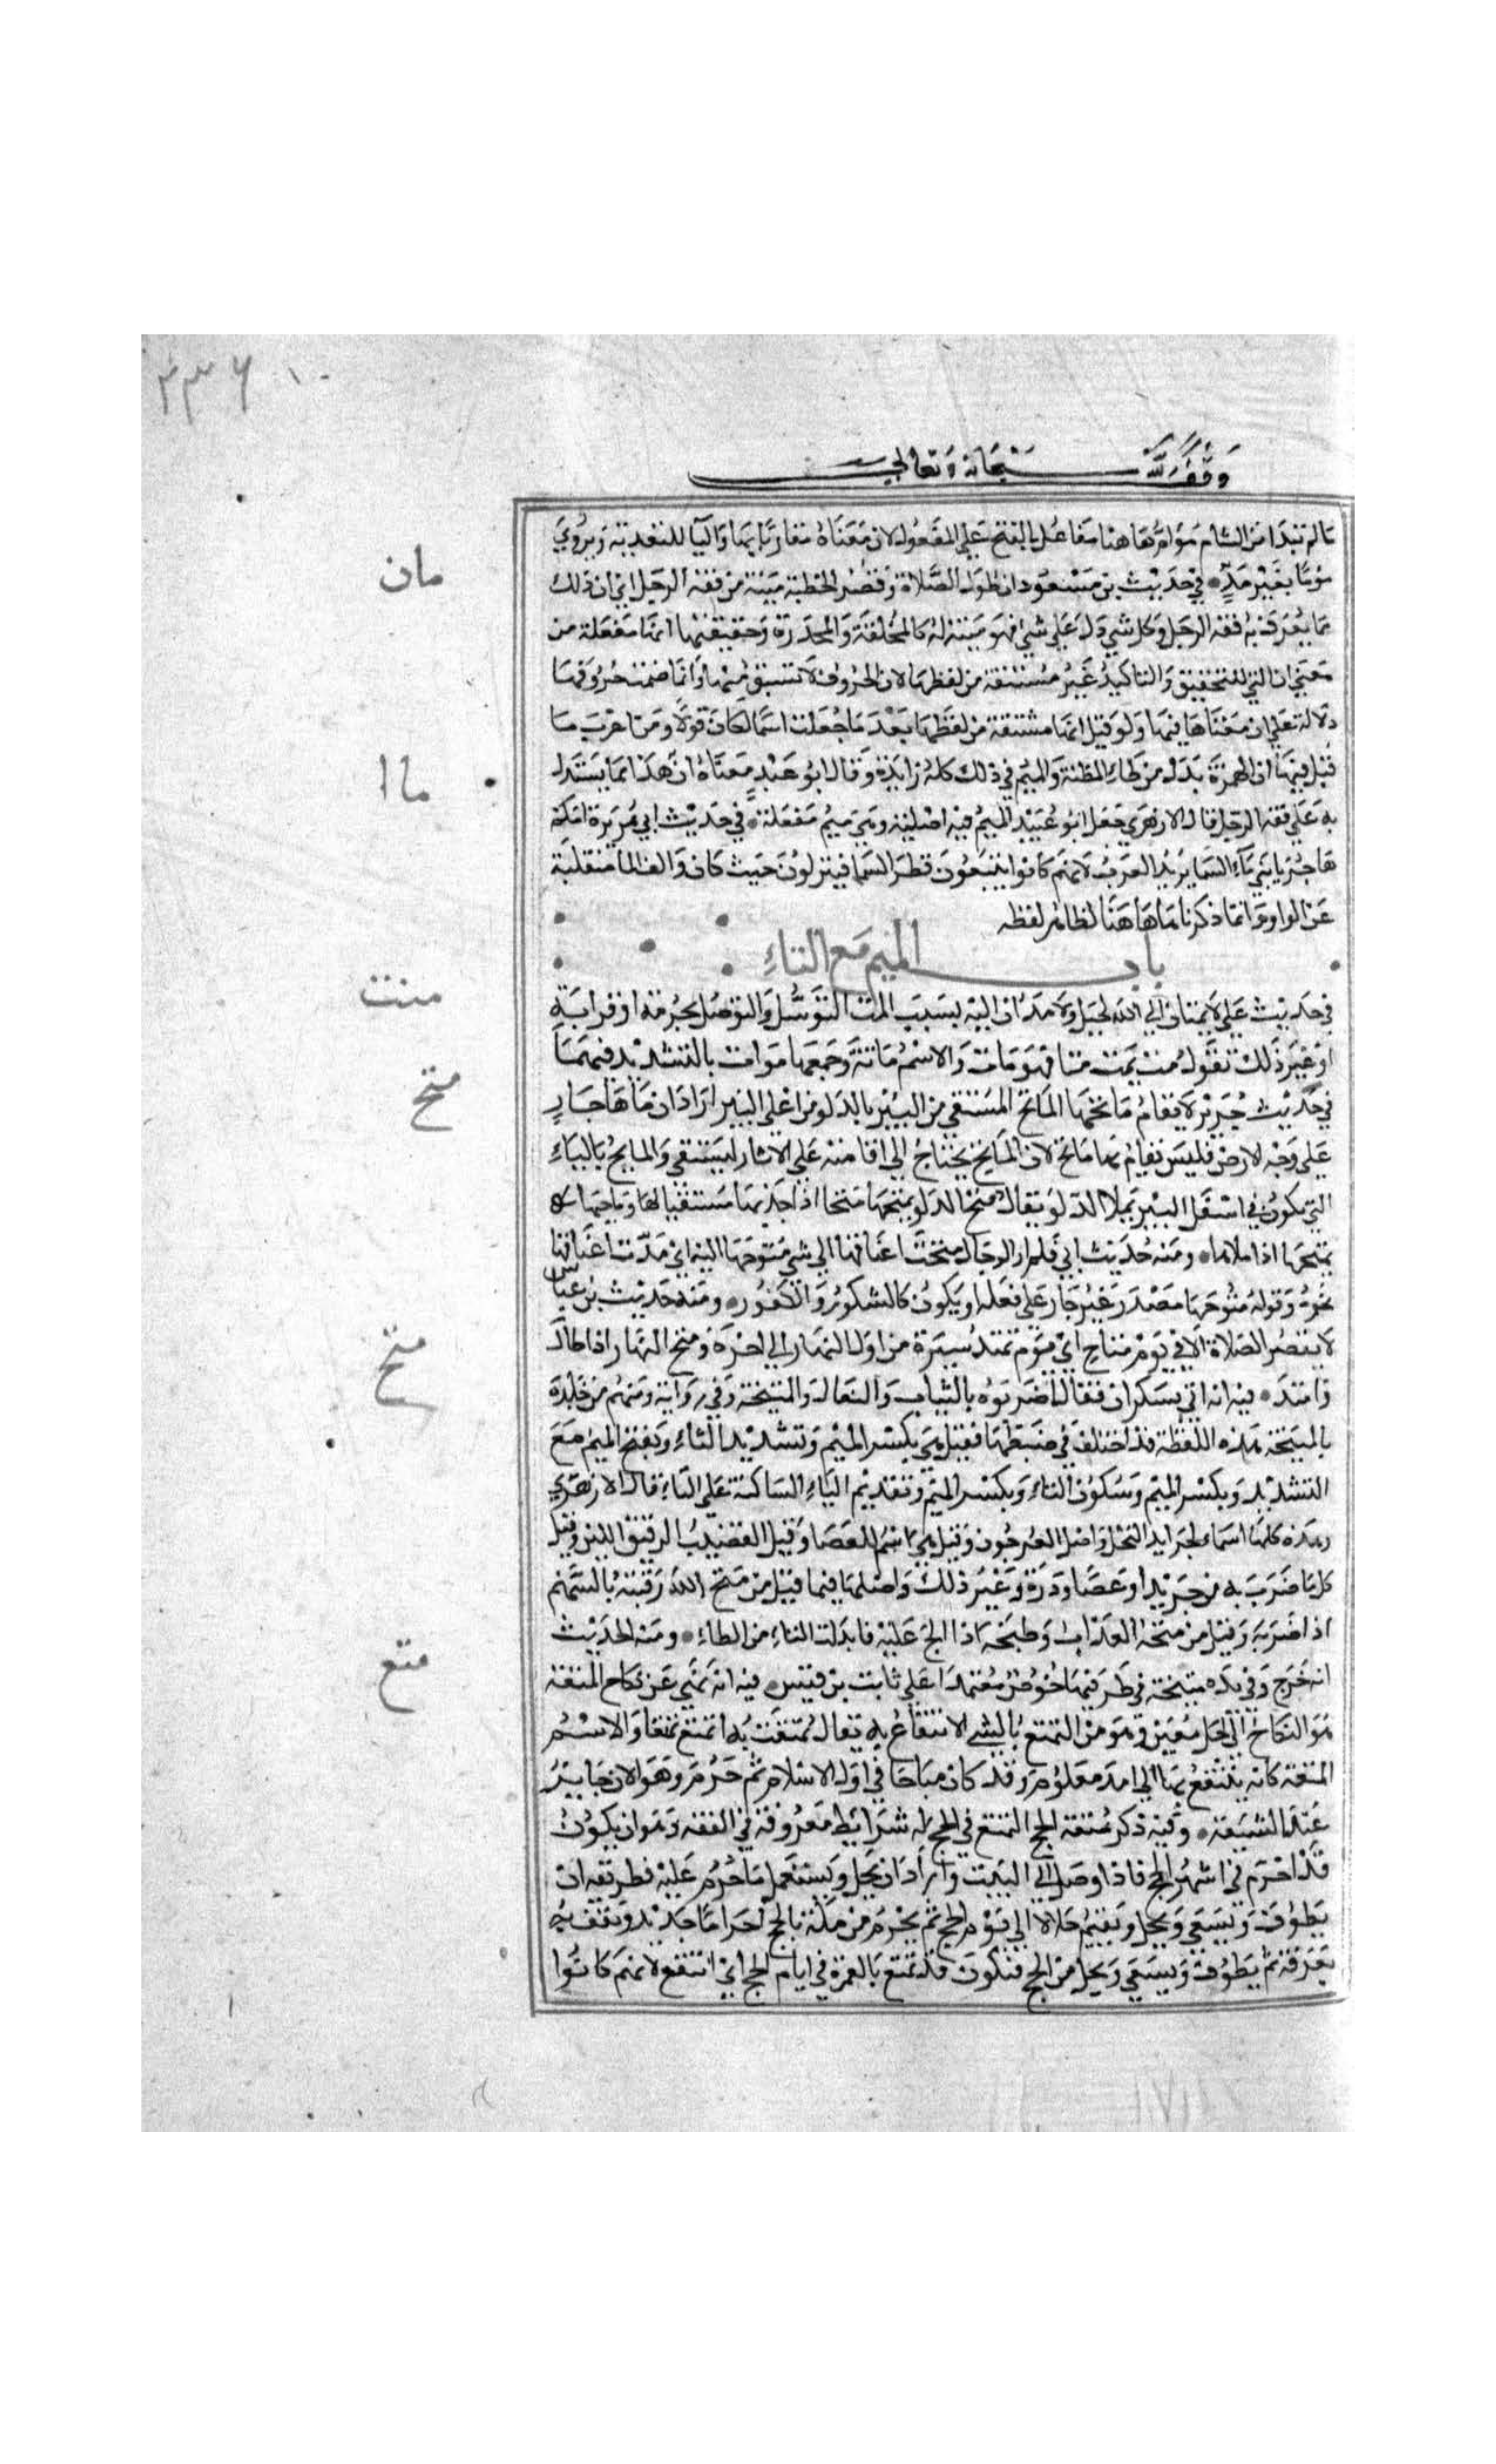 ٣٣٦
وقف لله سبحانه وتعالى
مالم تبدأ من الشام مؤامر هاهنا مفاعل بالفتح على المفعول لان معناه مقاربا بها والبا للتعدية ويروي
مان
مؤما بغير مد في حديث بن مسعود ان طول الصلاة وقصر الخطبة مئنة من فقه الرجل اي ان ذلك
مما يعرف به فقه الرجل وكل شي دل على شي فهو مئنة له كالمخلقة والمجدرة وحقيقتها انها مفعلة من
معني ان التي للتحقيق والتاكيد غير مشتقة من لفظها لان الحروف لا تشتق منها وانما ضمنت حروفها
دلالة على ان معناها فيها ولو قيل انها مشتقة من لفظها بعد ما جعلت اسما لكان قولا ومن اغرب ما
ماا
قيل فيها ان الهمزة بدل من ظاء المظنة والميم في ذلك كله زايدة وقال ابو عبيد معناه ان هذا مما يستدل
به على فقه الرجل قال الازهري جعل ابو عبيد الميم فيه اصلية وهي ميم مفعلة في حديث ابي هريرة امكم
هاجر يا بني ماء السما يريد العرب لانهم كانوا يتبعون قطر السما فينزلون حيث كان والف الما منقلبة
عن الواو وانما ذكرناها هاهنا لظاهر لفظه
باب الميم مع التاء
متت
في حديث علي لا يمتان الى الله بحبل ولا مدان اليه بسبب المت التوسل والتوصل بحرمة او قرابة
او غير ذلك تقول مت يمت متا فهو مات والاسم ماتة وجمعها موات بالتشديد فيهما
متح
في حديث جرير لا يقام ماتحها الماتح المستقي من البئر بالدلو من اعلى البئر اراد ان ماها جار
على وجه الارض فليس يقام بها ماتح لان الماتح يحتاج الى اقامته على الابار ليستقي والمايح بالياء
الذي يكون في اسفل البئر يملا الدلو يقال متح الدلو يمتحها متحا اذا جذبها مستقيا لها وماحها
يميحها اذا ملاها ومنه حديث ابي فلم ار الرجال متحت اعناقها الى شي متوحها اليه اي مدت اعناقها
نحوه وقوله متوحها مصدر غير جار على فعله او يكون كالشكور والكفور ومنه حديث بن عباس
متخ
لا تقصر الصلاة الا في يوم متاح اي يوم تمتد سيره من اول النهار الى اخره ومتح النهار اذا طال
وامتد فيه انه اتي بسكران فقال اضربوه بالثياب والنعال والمتيخة وفي رواية ومنهم من جلده
بالمتيخة هذه اللفظة قد اختلف في ضبطها فقيل هي بكسر الميم وتشديد التاء وبفتح الميم مع
التشديد وبكسر الميم وسكون التاء وبكسر الميم وتقديم الياء الساكنة على التاء قال الازهري
وهذه كلها اسماء لجرايد النخل واصل العرجون وقيل هي اسم للعصا وقيل القضيب الرقيق اللين وقيل
كل ما ضرب به من جريد او عصا ودرة وغير ذلك واصلها فيما قيل من متخ الله رقبته بالسهم
اذا ضربه وقيل من متخه العذاب وطيخه اذا الح عليه فابدلت التاء من الطاء ومنه الحديث
متع
انه خرج وفي يده متيخة في طرفها خوص معتمدا على ثابت بن قيس فيه انه نهى عن نكاح المتعة
هو النكاح الى اجل معين وهو من التمتع بالشي الانتفاع به يقال تمتعت به اتمتع تمتعا والاسم
المتعة كانه ينتفع بها الى امد معلوم وقد كان مباحا في اول الاسلام ثم حرم وهو الان جايز
عند الشيعة وفيه ذكر متعة الحج التمتع في الحج له شرايط معروفة في الفقه وهو ان يكون
قد احرم في اشهر الحج فاذا وصل الى البيت واراد ان يحل ويستعمل ما حرم عليه فطريقه ان
يطوف ويسعى ويحل ويقيم حلالا الى يوم الحج ثم يحرم من مكة بالحج احراما جديد ويقف
بعرفة ثم يطوف ويسعى ويحل من الحج فتكون قد تمتع بالعمرة في ايام الحج اي انتفع لانهم كانوا